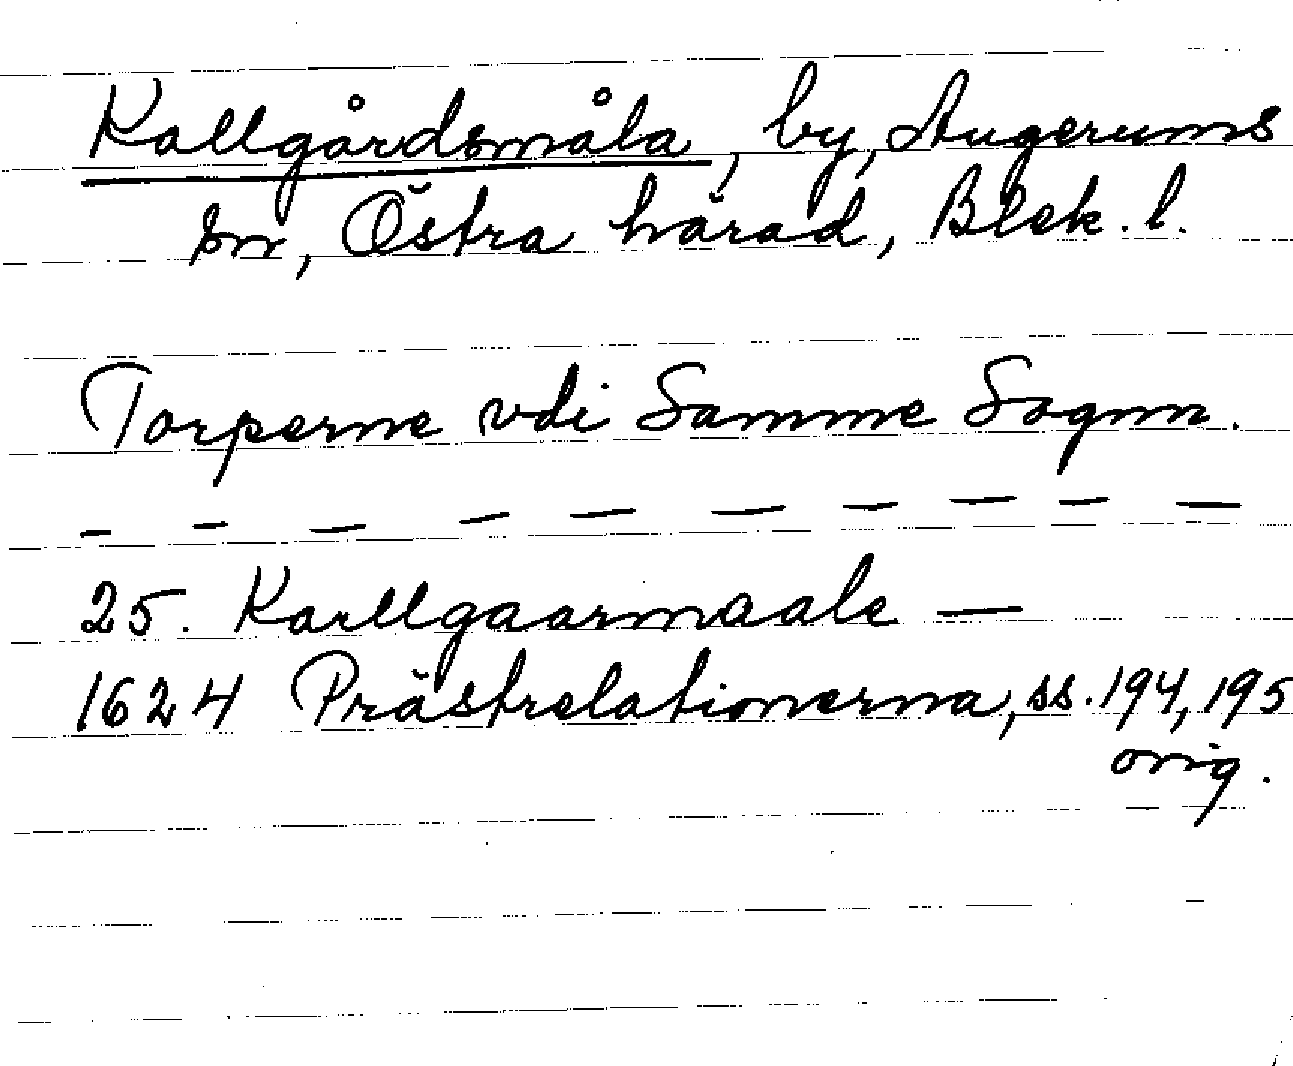 Kallgårdsmåla, by, Augerums
sn, Östra härad, Blek. l.
Torperne vdi Samme Sognn.
— — — — — — — — — —
25. Kallgaarmaale —
1624 Prästrelationerna, ss. 194, 195
orig.